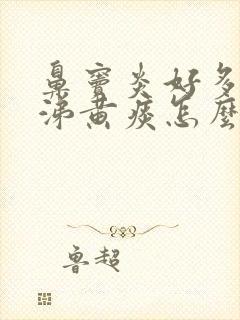 鼻窦炎好多
涕黄痰怎麼
鲁超